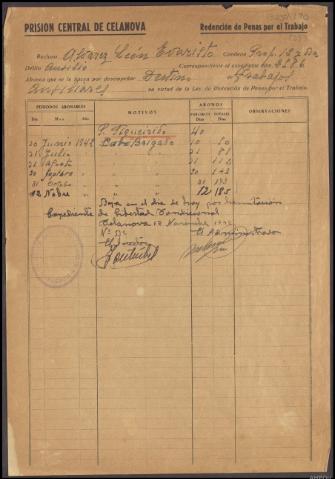 PRISION CENTRAL DE CELANOVA Redención de Penas por el Trabajo
Recluso Alvarez León Evaristo Condena
Delito Auxilio Correspondiente al completo
Abonos que se le hacen por desempeñar Destino Trabajos
Auxiliares en virtud de la Ley de Redención de Penas por el Trabajo.
PERIODOS ABONABLES MOTIVOS ABONOS OBSERVACIONES
Día Mes Año PERIODO Días TOTALES Días
P. Figueirido 40
20 Junio 1942 Cabo Brigada 10 50
31 Julio " " 21
31 Agosto " " 21
30 Septbre " " 30 142
31 Octubre " " 31 173
12 Nobre " " 12 185
Baja en el día de hoy por tramitación
expediente de libertad condicional
Celanova 12 Noviembre 1942
Vº Bº El Administrador
El Director